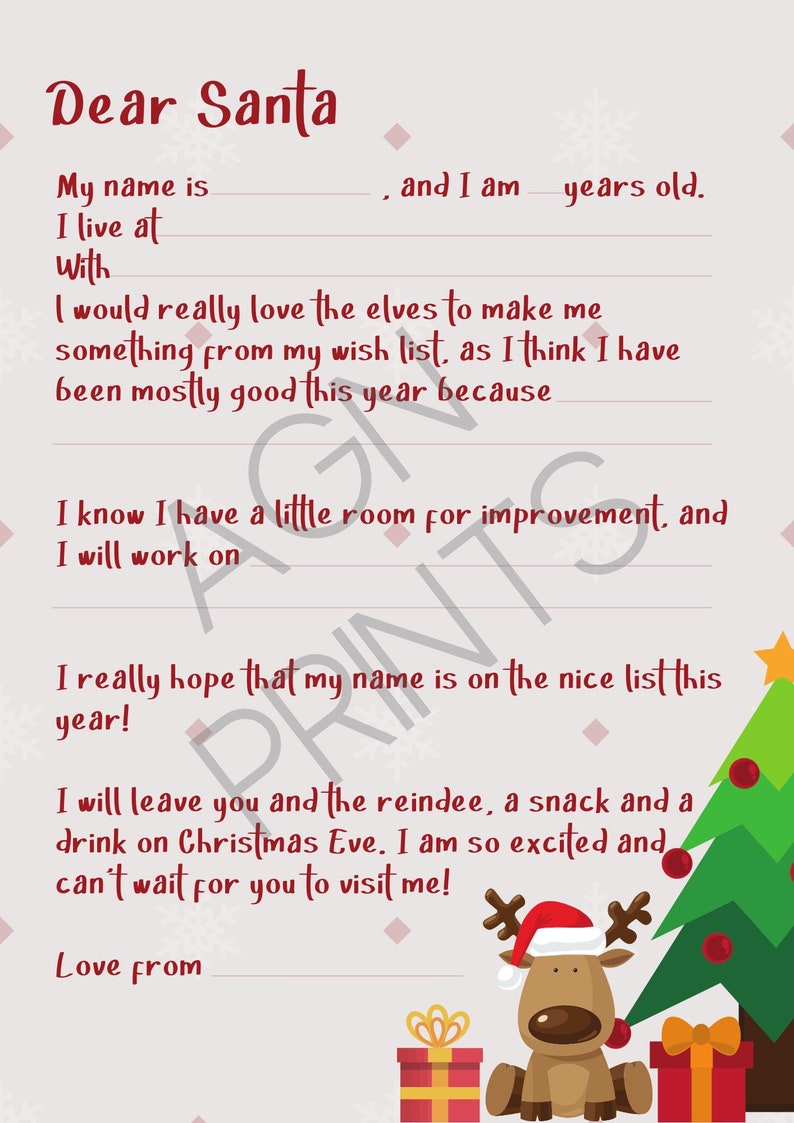 Dear Santa
My name is , and I am years old.
I live at
With
I would really love the elves to make me
something from my wish list, as I think I have
been mostly good this year because
I know I have a little room for improvement, and
I will work on
I really hope that my name is on the nice list this
year!
I will leave you and the reindee, a snack and a
drink on Christmas Eve. I am so excited and
can't wait for you to visit me!
Love from
AGN
PRINTS